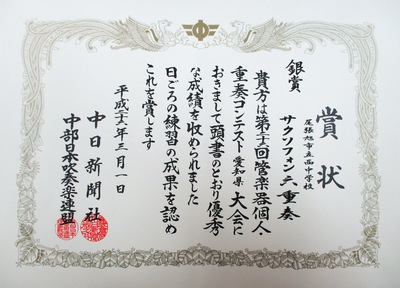 賞状
尾張旭市立西中学校
サクソフォン二重奏
銀賞
貴方は第二十一回管楽器個人
重奏コンテスト愛知県大会に
おきまして頭書のとおり優秀
な成績を収められました
日ごろの練習の成果を認め
これを賞します
平成二十六年三月一日
中日新聞社
中部日本吹奏楽連盟